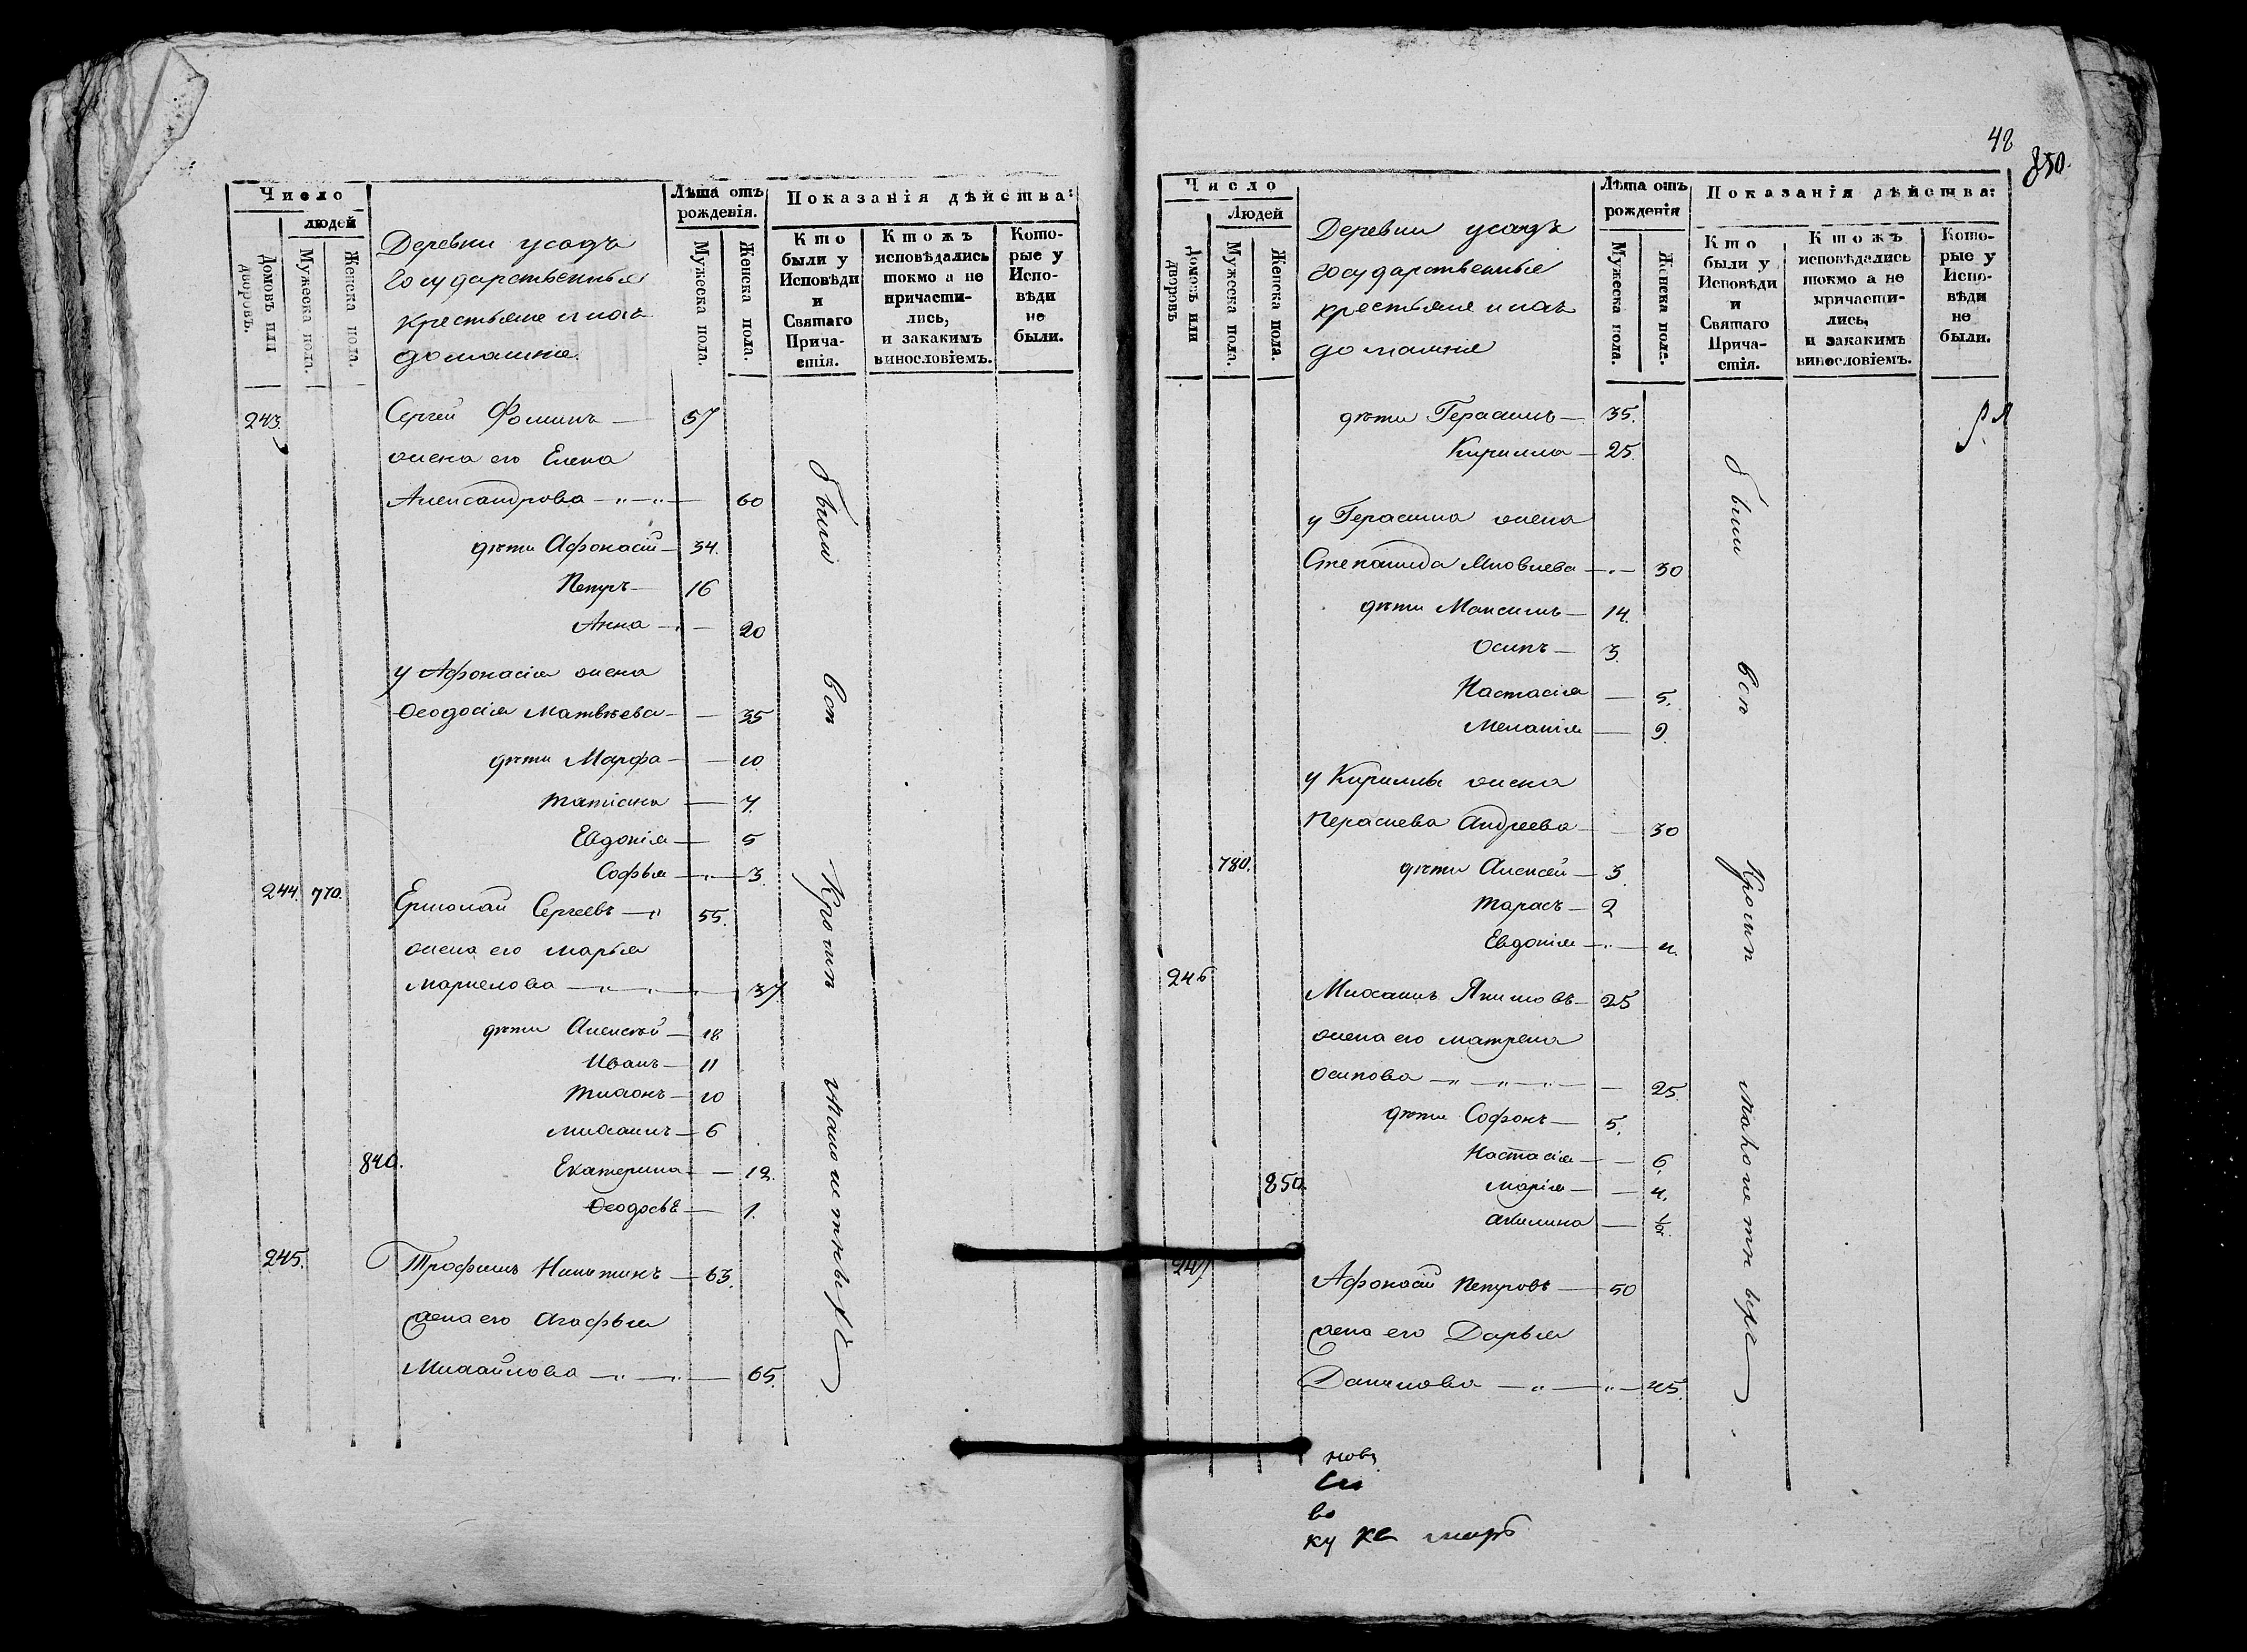 Число
людей
Домовъ или дворовъ.
Мужеска пола.
Женска пола.
Деревни усадъ
государственные
крестьяне и ихъ
домашніе
Лѣта отъ
рожденія.
Мужеска пола.
Женска пола.
Показанія дѣйства:
Кто
были у
Исповѣди
и
Святаго
Прича-
стія.
Ктожъ
исповѣдались
токмо а не
причасти-
лись,
и закакимъ
винословіемъ.
Кото-
рые у
Испо-
вѣди
не
были.
243. Сергей Фоминъ — 57
жена его Елена
Александрова — 60
дѣти Афонасій — 34.
Петръ — 16
Анна — 20
у Афонасія жена
Ѳеодосія Матвѣева — 35
дѣти Марфа — 10
Татіана — 7.
Евдокія — 5
Софья — 3.
244. 770. Ермолай Сергеевъ — 55.
жена его Марья
Маркелова — 37
дѣти Алексѣй — 18
Иванъ — 11
Тихонъ — 10
Михаилъ — 6
840. Екатерина — 12.
Ѳеодосья — 1.
245. Трофимъ Никитинъ — 63.
жена его Агафья
Михайлова — 65.
были всѣ Кромѣ малолетныхъ
42
850.
Число
Людей
Домовъ или дворовъ
Мужеска пола.
Женска пола.
Деревни усадъ
государственные
крестьяне и ихъ
домашніе
Лѣта отъ
рожденія
Мужеска пола.
Женска пола.
Показанія дѣйства:
Кто
были у
Исповѣди
и
Святаго
Прича-
стія.
Ктожъ
исповѣдались
токмо а не
причасти-
лись,
и закакимъ
винословіемъ.
Кото-
рые у
Испо-
вѣди
не
были.
дѣти Герасимъ — 35.
Кирилла — 25.
у Герасима жена
Степанида Яковлева — 30
дѣти Максимъ — 14.
Осипъ — 3.
Настасія — 5.
Меланія — 9.
у Кириллы жена
Прасковья Андреева — 30
780. дѣти Алексей — 3.
Тарасъ — 2
Евдокія — 4.
246. Михаилъ Якимовъ — 25
жена его Матрена
Осипова — 25.
дѣти Софонъ — 5.
Настасія — 6.
850. Марія — 4.
Акилина — 1/2.
247. Афонасій Петровъ — 50
жена его Дарья
Данилова — 45.
были всѣ Кромѣ малолетныхъ